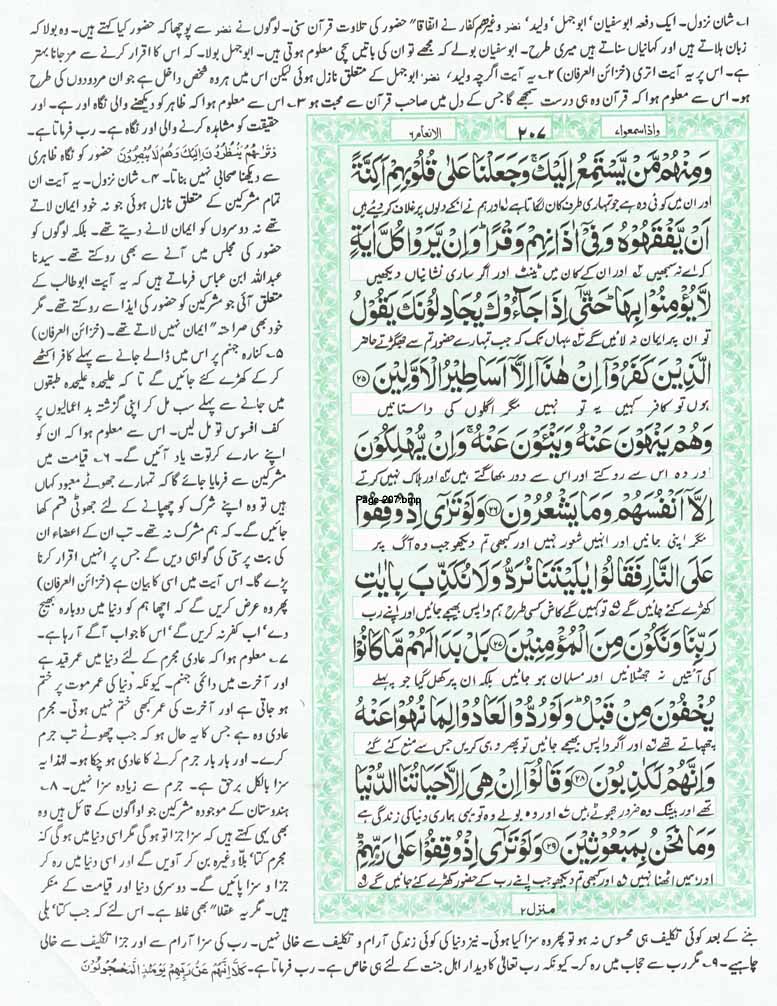 ۱؎ شان نزول۔ ایک دفعہ ابو سفیان‘ ابوجہل‘ ولید‘ نضر وغیرہم کفار نے اتفاقا" حضور کی تلاوت قرآن سنی۔ لوگوں نے نضر سے پوچھا کہ حضور کیا کہتے ہیں۔ وہ بولا کہ
زبان ہلاتے ہیں اور کہانیاں سناتے ہیں میری طرح۔ ابو سفیان بولے کہ مجھے تو ان کی باتیں سچی معلوم ہوتی ہیں۔ ابوجہل بولا۔ کہ اس کا اقرار کرنے سے مرجانا بہتر
ہے۔ اس پر یہ آیت اتری (خزائن العرفان) ۲؎ یہ آیت اگرچہ ولید‘ نضر‘ ابوجہل کے متعلق نازل ہوئی لیکن اس میں ہر وہ شخص داخل ہے جو ان مردودوں کی طرح
ہو۔ اس سے معلوم ہوا کہ قرآن وہ ہی درست سمجھے گا جس کے دل میں صاحب قرآن سے محبت ہو ۳؎ اس سے معلوم ہوا کہ ظاہر کو دیکھنے والی نگاہ اور ہے۔ اور
حقیقت کو مشاہدہ کرنے والی اور نگاہ ہے۔ رب فرماتا ہے۔
وَتَرٰىهُمْ يَنْظُرُوْنَ اِلَيْكَ وَهُمْ لَا يُبْصِرُوْنَ حضور کو نگاہ ظاہری
سے دیکھنا صحابی نہیں بناتا۔ ۴؎ شان نزول۔ یہ آیت ان
تمام مشرکین کے متعلق نازل ہوئی جو نہ خود ایمان لاتے
تھے نہ دوسروں کو ایمان لانے دیتے تھے۔ بلکہ لوگوں کو
حضور کی مجلس میں آنے سے بھی روکتے تھے۔ سیدنا
عبداللہ ابن عباس فرماتے ہیں کہ یہ آیت ابوطالب کے
متعلق آئی جو مشرکین کو حضور کی ایذا سے روکتے تھے۔ مگر
خود بھی صراحتہ" ایمان نہیں لاتے تھے۔ (خزائن العرفان)
۵؎ کنارہ جہنم پر اس میں ڈالے جانے سے پہلے کافر اکٹھے
کر کے کھڑے کئے جائیں گے تا کہ علیحدہ علیحدہ طبقوں
میں جانے سے پہلے سب مل کر اپنی گزشتہ بد اعمالیوں پر
کف افسوس تو مل لیں۔ اس سے معلوم ہوا کہ ان کو
اپنے سارے کرتوت یاد آئیں گے۔ ۶؎ قیامت میں
مشرکین سے فرمایا جائے گا کہ تمہارے جھوٹے معبود کہاں
ہیں تو وہ اپنے شرک کو چھپانے کے لئے جھوٹی قسم کھا
جائیں گے۔ کہ ہم مشرک نہ تھے۔ تب ان کے اعضاء ان
کی بت پرستی کی گواہی دیں گے جس پر انہیں اقرار کرنا
پڑے گا۔ اس آیت میں اسی کا بیان ہے (خزائن العرفان)
پھر وہ عرض کریں گے کہ اچھا ہم کو دنیا میں دوبارہ بھیج
دے‘ اب کفر نہ کریں گے‘ اس کا جواب آگے آ رہا ہے۔
۷؎ معلوم ہوا کہ عادی مجرم کے لئے دنیا میں عمر قید ہے
اور آخرت میں دائمی جہنم۔ کیونکہ دنیا کی عمر موت پر ختم
ہو جاتی ہے اور آخرت کی عمر کبھی ختم نہیں ہوتی۔ مجرم
عادی وہ ہے جس کا یہ حال ہو کہ جب چھوٹے تب جرم
کرے۔ اور بار بار جرم کرنے کا عادی ہو چکا ہو۔ لہٰذا یہ
سزا بالکل برحق ہے۔ جرم سے زیادہ سزا نہیں۔ ۸؎
ہندوستان کے موجودہ مشرکین جو اواگون کے قائل ہیں وہ
بھی یہی کہتے ہیں کہ سزا جزا تو ہوگی مگر اسی دنیا میں ہوگی کہ
مجرم کتا‘ بلا وغیرہ بن کر آویں گے اور اسی دنیا میں رہ کر
جزا و سزا پائیں گے۔ دوسری دنیا اور قیامت کے منکر
ہیں۔ مگر یہ عقلا" بھی غلط ہے۔ اس لئے کہ جب کتا‘ بلی
بننے کے بعد کوئی تکلیف ہی محسوس نہ ہو تو پھر وہ سزا کیا ہوئی۔ نیز دنیا کی کوئی زندگی آرام و تکلیف سے خالی نہیں۔ رب کی سزا آرام سے اور جزا تکلیف سے خالی
چاہیے۔ ۹؎ مگر رب سے حجاب میں رہ کر۔ کیونکہ رب تعالیٰ کا دیدار اہل جنت کے لئے ہی خاص ہے۔ رب فرماتا ہے۔ كَلَّآ اِنَّهُمْ عَنْ رَّبِّهِمْ يَوْمَئِذٍ لَّمَحْجُوْبُوْنَ
واذاسمعوا ۷ ۲۰۷ الانعام ۶
وَمِنْهُمْ مَّنْ يَّسْتَمِعُ اِلَيْكَ ۚ وَجَعَلْنَا عَلٰى قُلُوْبِهِمْ اَكِنَّةً
اور ان میں کوئی وہ ہے جو تمہاری طرف کان لگاتا ہے ۱؎ اور ہم نے انکے دلوں پر غلاف کر دیئے ہیں
اَنْ يَّفْقَهُوْهُ وَفِيْٓ اٰذَانِهِمْ وَقْرًا ؕ وَاِنْ يَّرَوْا كُلَّ اٰيَةٍ
کہ اسے نہ سمجھیں ۲؎ اور ان کے کان میں ٹینٹ اور اگر ساری نشانیاں دیکھیں
لَّا يُؤْمِنُوْا بِهَا ؕ حَتّٰىٓ اِذَا جَآءُوْكَ يُجَادِلُوْنَكَ يَقُوْلُ
تو ان پر ایمان نہ لائیں گے ۳؎ یہاں تک کہ جب تمہارے حضور تم سے جھگڑتے حاضر
الَّذِيْنَ كَفَرُوْٓا اِنْ هٰذَآ اِلَّآ اَسَاطِيْرُ الْاَوَّلِيْنَ ۲۵
ہوں تو کافر کہیں یہ تو نہیں مگر اگلوں کی داستانیں
وَهُمْ يَنْهَوْنَ عَنْهُ وَيَنْـَٔوْنَ عَنْهُ ۚ وَاِنْ يُّهْلِكُوْنَ
اور وہ اس سے روکتے اور اس سے دور بھاگتے ہیں ۴؎ اور ہلاک نہیں کرتے
Page-207.bmp
اِلَّآ اَنْفُسَهُمْ وَمَا يَشْعُرُوْنَ ۲۶ وَلَوْ تَرٰٓى اِذْ وُقِفُوْا
مگر اپنی جانیں اور انہیں شعور نہیں اور کبھی تم دیکھو جب وہ آگ پر
عَلَى النَّارِ فَقَالُوْا يٰلَيْتَنَا نُرَدُّ وَلَا نُكَذِّبَ بِاٰيٰتِ
کھڑے کئے جائیں گے ۵؎ تو کہیں گے کاش کسی طرح ہم واپس بھیجے جائیں اور اپنے رب
رَبِّنَا وَنَكُوْنَ مِنَ الْمُؤْمِنِيْنَ ۲۷ بَلْ بَدَا لَهُمْ مَّا كَانُوْا
کی آیتیں نہ جھٹلائیں اور مسلمان ہو جائیں بلکہ ان پر کھل گیا جو پہلے
يُخْفُوْنَ مِنْ قَبْلُ ؕ وَلَوْ رُدُّوْا لَعَادُوْا لِمَا نُهُوْا عَنْهُ
چھپاتے تھے ۶؎ اور اگر واپس بھیجے جائیں تو پھر وہی کریں جس سے منع کئے گئے
وَاِنَّهُمْ لَكٰذِبُوْنَ ۲۸ وَقَالُوْٓا اِنْ هِيَ اِلَّا حَيَاتُنَا الدُّنْيَا
تھے اور بیشک وہ ضرور جھوٹے ہیں ۷؎ اور وہ بولے وہ تو یہی ہماری دنیا کی زندگی ہے
وَمَا نَحْنُ بِمَبْعُوْثِيْنَ ۲۹ وَلَوْ تَرٰٓى اِذْ وُقِفُوْا عَلٰى رَبِّهِمْ ؕ
اور ہمیں اٹھنا نہیں ۸؎ اور کبھی تم دیکھو جب اپنے رب کے حضور کھڑے کئے جائیں گے ۹؎
منزل ۲